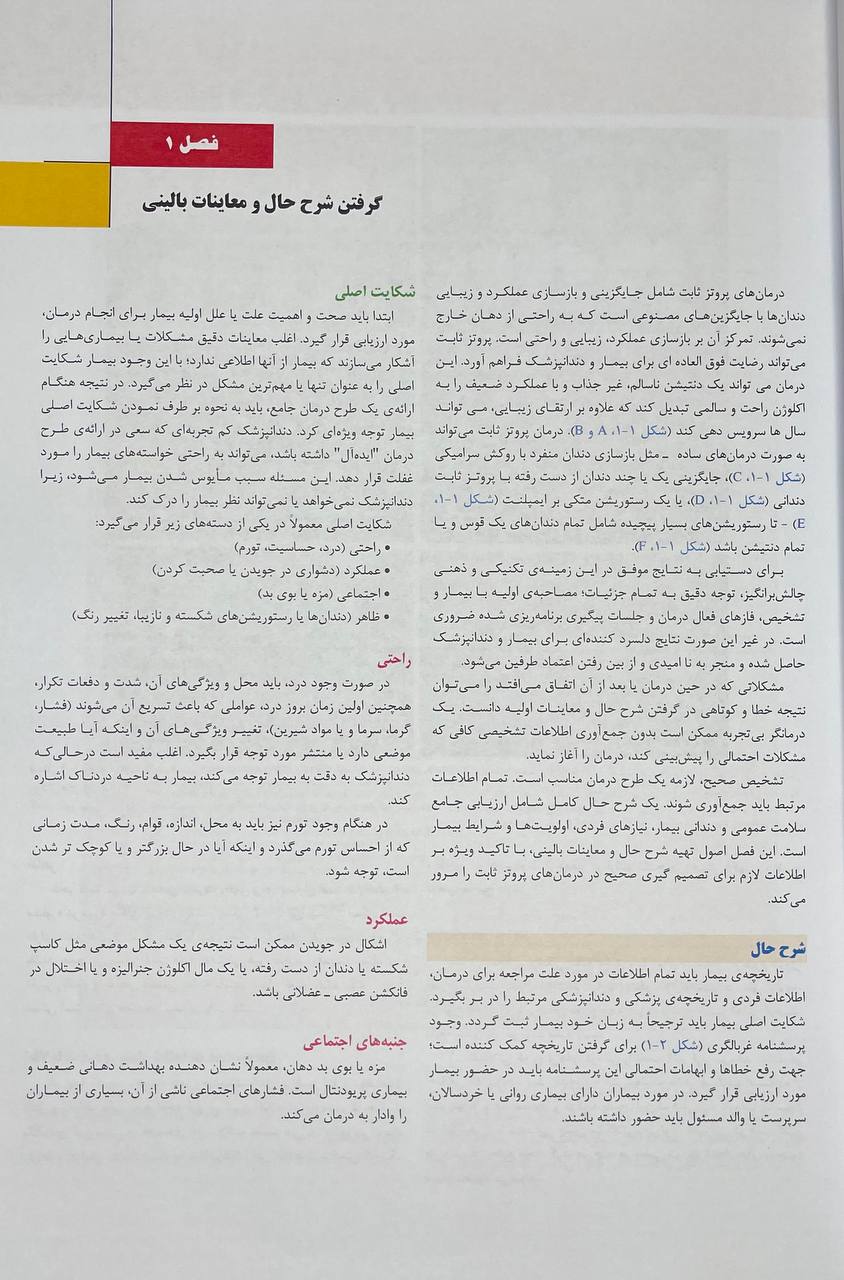 فصل ۱
گرفتن شرح حال و معاینات بالینی
درمان‌های پروتز ثابت شامل جایگزینی و بازسازی عملکرد و زیبایی
دندان‌ها با جایگزین‌های مصنوعی است که به راحتی از دهان خارج
نمی‌شوند. تمرکز آن بر بازسازی عملکرد، زیبایی و راحتی است. پروتز ثابت
می‌تواند رضایت فوق العاده ای برای بیمار و دندانپزشک فراهم آورد. این
درمان می تواند یک دنتیشن ناسالم، غیر جذاب و با عملکرد ضعیف را به
اکلوژن راحت و سالمی تبدیل کند که علاوه بر ارتقای زیبایی، می تواند
سال ها سرویس دهی کند (شکل ۱-۱، A و B). درمان پروتز ثابت می‌تواند
به صورت درمان‌های ساده ـ مثل بازسازی دندان منفرد با روکش سرامیکی
(شکل ۱-۱، C)، جایگزینی یک یا چند دندان از دست رفته با پروتز ثابت
دندانی (شکل ۱-۱، D)، یا یک رستوریشن متکی بر ایمپلنت (شکل ۱-۱،
E) - تا رستوریشن‌های بسیار پیچیده شامل تمام دندان‌های یک قوس و یا
تمام دنتیشن باشد (شکل ۱-۱، F).
برای دستیابی به نتایج موفق در این زمینه‌ی تکنیکی و ذهنی
چالش‌برانگیز، توجه دقیق به تمام جزئیات؛ مصاحبه‌ی اولیه با بیمار و
تشخیص، فازهای فعال درمان و جلسات پیگیری برنامه‌ریزی شده ضروری
است. در غیر این صورت نتایج دلسرد کننده‌ای برای بیمار و دندانپزشک
حاصل شده و منجر به نا امیدی و از بین رفتن اعتماد طرفین می‌شود.
مشکلاتی که در حین درمان یا بعد از آن اتفاق می‌افتد را می‌توان
نتیجه خطا و کوتاهی در گرفتن شرح حال و معاینات اولیه دانست. یک
درمانگر بی‌تجربه ممکن است بدون جمع‌آوری اطلاعات تشخیصی کافی که
مشکلات احتمالی را پیش‌بینی کند، درمان را آغاز نماید.
تشخیص صحیح، لازمه یک طرح درمان مناسب است. تمام اطلاعات
مرتبط باید جمع‌آوری شوند. یک شرح حال کامل شامل ارزیابی جامع
سلامت عمومی و دندانی بیمار، نیازهای فردی، اولویت‌ها و شرایط بیمار
است. این فصل اصول تهیه شرح حال و معاینات بالینی، با تاکید ویژه بر
اطلاعات لازم برای تصمیم گیری صحیح در درمان‌های پروتز ثابت را مرور
می‌کند.
شرح حال
تاریخچه‌ی بیمار باید تمام اطلاعات در مورد علت مراجعه برای درمان،
اطلاعات فردی و تاریخچه‌ی پزشکی و دندانپزشکی مرتبط را در بر بگیرد.
شکایت اصلی بیمار باید ترجیحاً به زبان خود بیمار ثبت گردد. وجود
پرسشنامه غربالگری (شکل ۲-۱) برای گرفتن تاریخچه کمک کننده است؛
جهت رفع خطاها و ابهامات احتمالی این پرسشنامه باید در حضور بیمار
مورد ارزیابی قرار گیرد. در مورد بیماران دارای بیماری روانی یا خردسالان،
سرپرست یا والد مسئول باید حضور داشته باشند.
شکایت اصلی
ابتدا باید صحت و اهمیت علت یا علل اولیه بیمار برای انجام درمان،
مورد ارزیابی قرار گیرد. اغلب معاینات دقیق مشکلات یا بیماری‌هایی را
آشکار می‌سازند که بیمار از آنها اطلاعی ندارد؛ با این وجود بیمار شکایت
اصلی را به عنوان تنها یا مهم‌ترین مشکل در نظر می‌گیرد. در نتیجه هنگام
ارائه‌ی یک طرح درمان جامع، باید به نحوه بر طرف نمودن شکایت اصلی
بیمار توجه ویژه‌ای کرد. دندانپزشک کم تجربه‌ای که سعی در ارائه‌ی طرح
درمان "ایده‌آل" داشته باشد، می‌تواند به راحتی خواسته‌های بیمار را مورد
غفلت قرار دهد. این مسئله سبب مأیوس شدن بیمار می‌شود، زیرا
دندانپزشک نمی‌خواهد یا نمی‌تواند نظر بیمار را درک کند.
شکایت اصلی معمولاً در یکی از دسته‌های زیر قرار می‌گیرد:
• راحتی (درد، حساسیت، تورم)
• عملکرد (دشواری در جویدن یا صحبت کردن)
• اجتماعی (مزه یا بوی بد)
• ظاهر (دندان‌ها یا رستوریشن‌های شکسته و نازیبا، تغییر رنگ)
راحتی
در صورت وجود درد، باید محل و ویژگی‌های آن، شدت و دفعات تکرار،
همچنین اولین زمان بروز درد، عواملی که باعث تسریع آن می‌شوند (فشار،
گرما، سرما و یا مواد شیرین)، تغییر ویژگی‌های آن و اینکه آیا طبیعت
موضعی دارد یا منتشر مورد توجه قرار بگیرد. اغلب مفید است درحالی‌که
دندانپزشک به دقت به بیمار توجه می‌کند، بیمار به ناحیه دردناک اشاره
کند.
در هنگام وجود تورم نیز باید به محل، اندازه، قوام، رنگ، مدت زمانی
که از احساس تورم می‌گذرد و اینکه آیا در حال بزرگتر و یا کوچک تر شدن
است، توجه شود.
عملکرد
اشکال در جویدن ممکن است نتیجه‌ی یک مشکل موضعی مثل کاسپ
شکسته یا دندان از دست رفته، یا یک مال اکلوژن جنرالیزه و یا اختلال در
فانکشن عصبی ـ عضلانی باشد.
جنبه‌های اجتماعی
مزه یا بوی بد دهان، معمولاً نشان دهنده بهداشت دهانی ضعیف و
بیماری پریودنتال است. فشارهای اجتماعی ناشی از آن، بسیاری از بیماران
را وادار به درمان می‌کند.